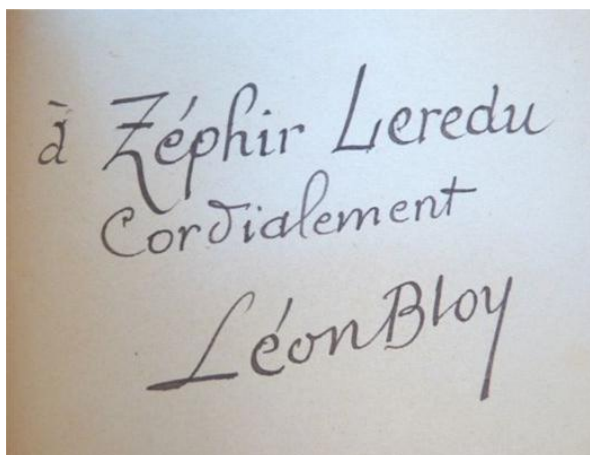 à Zéphir Leredu
Cordialement
Léon Bloy